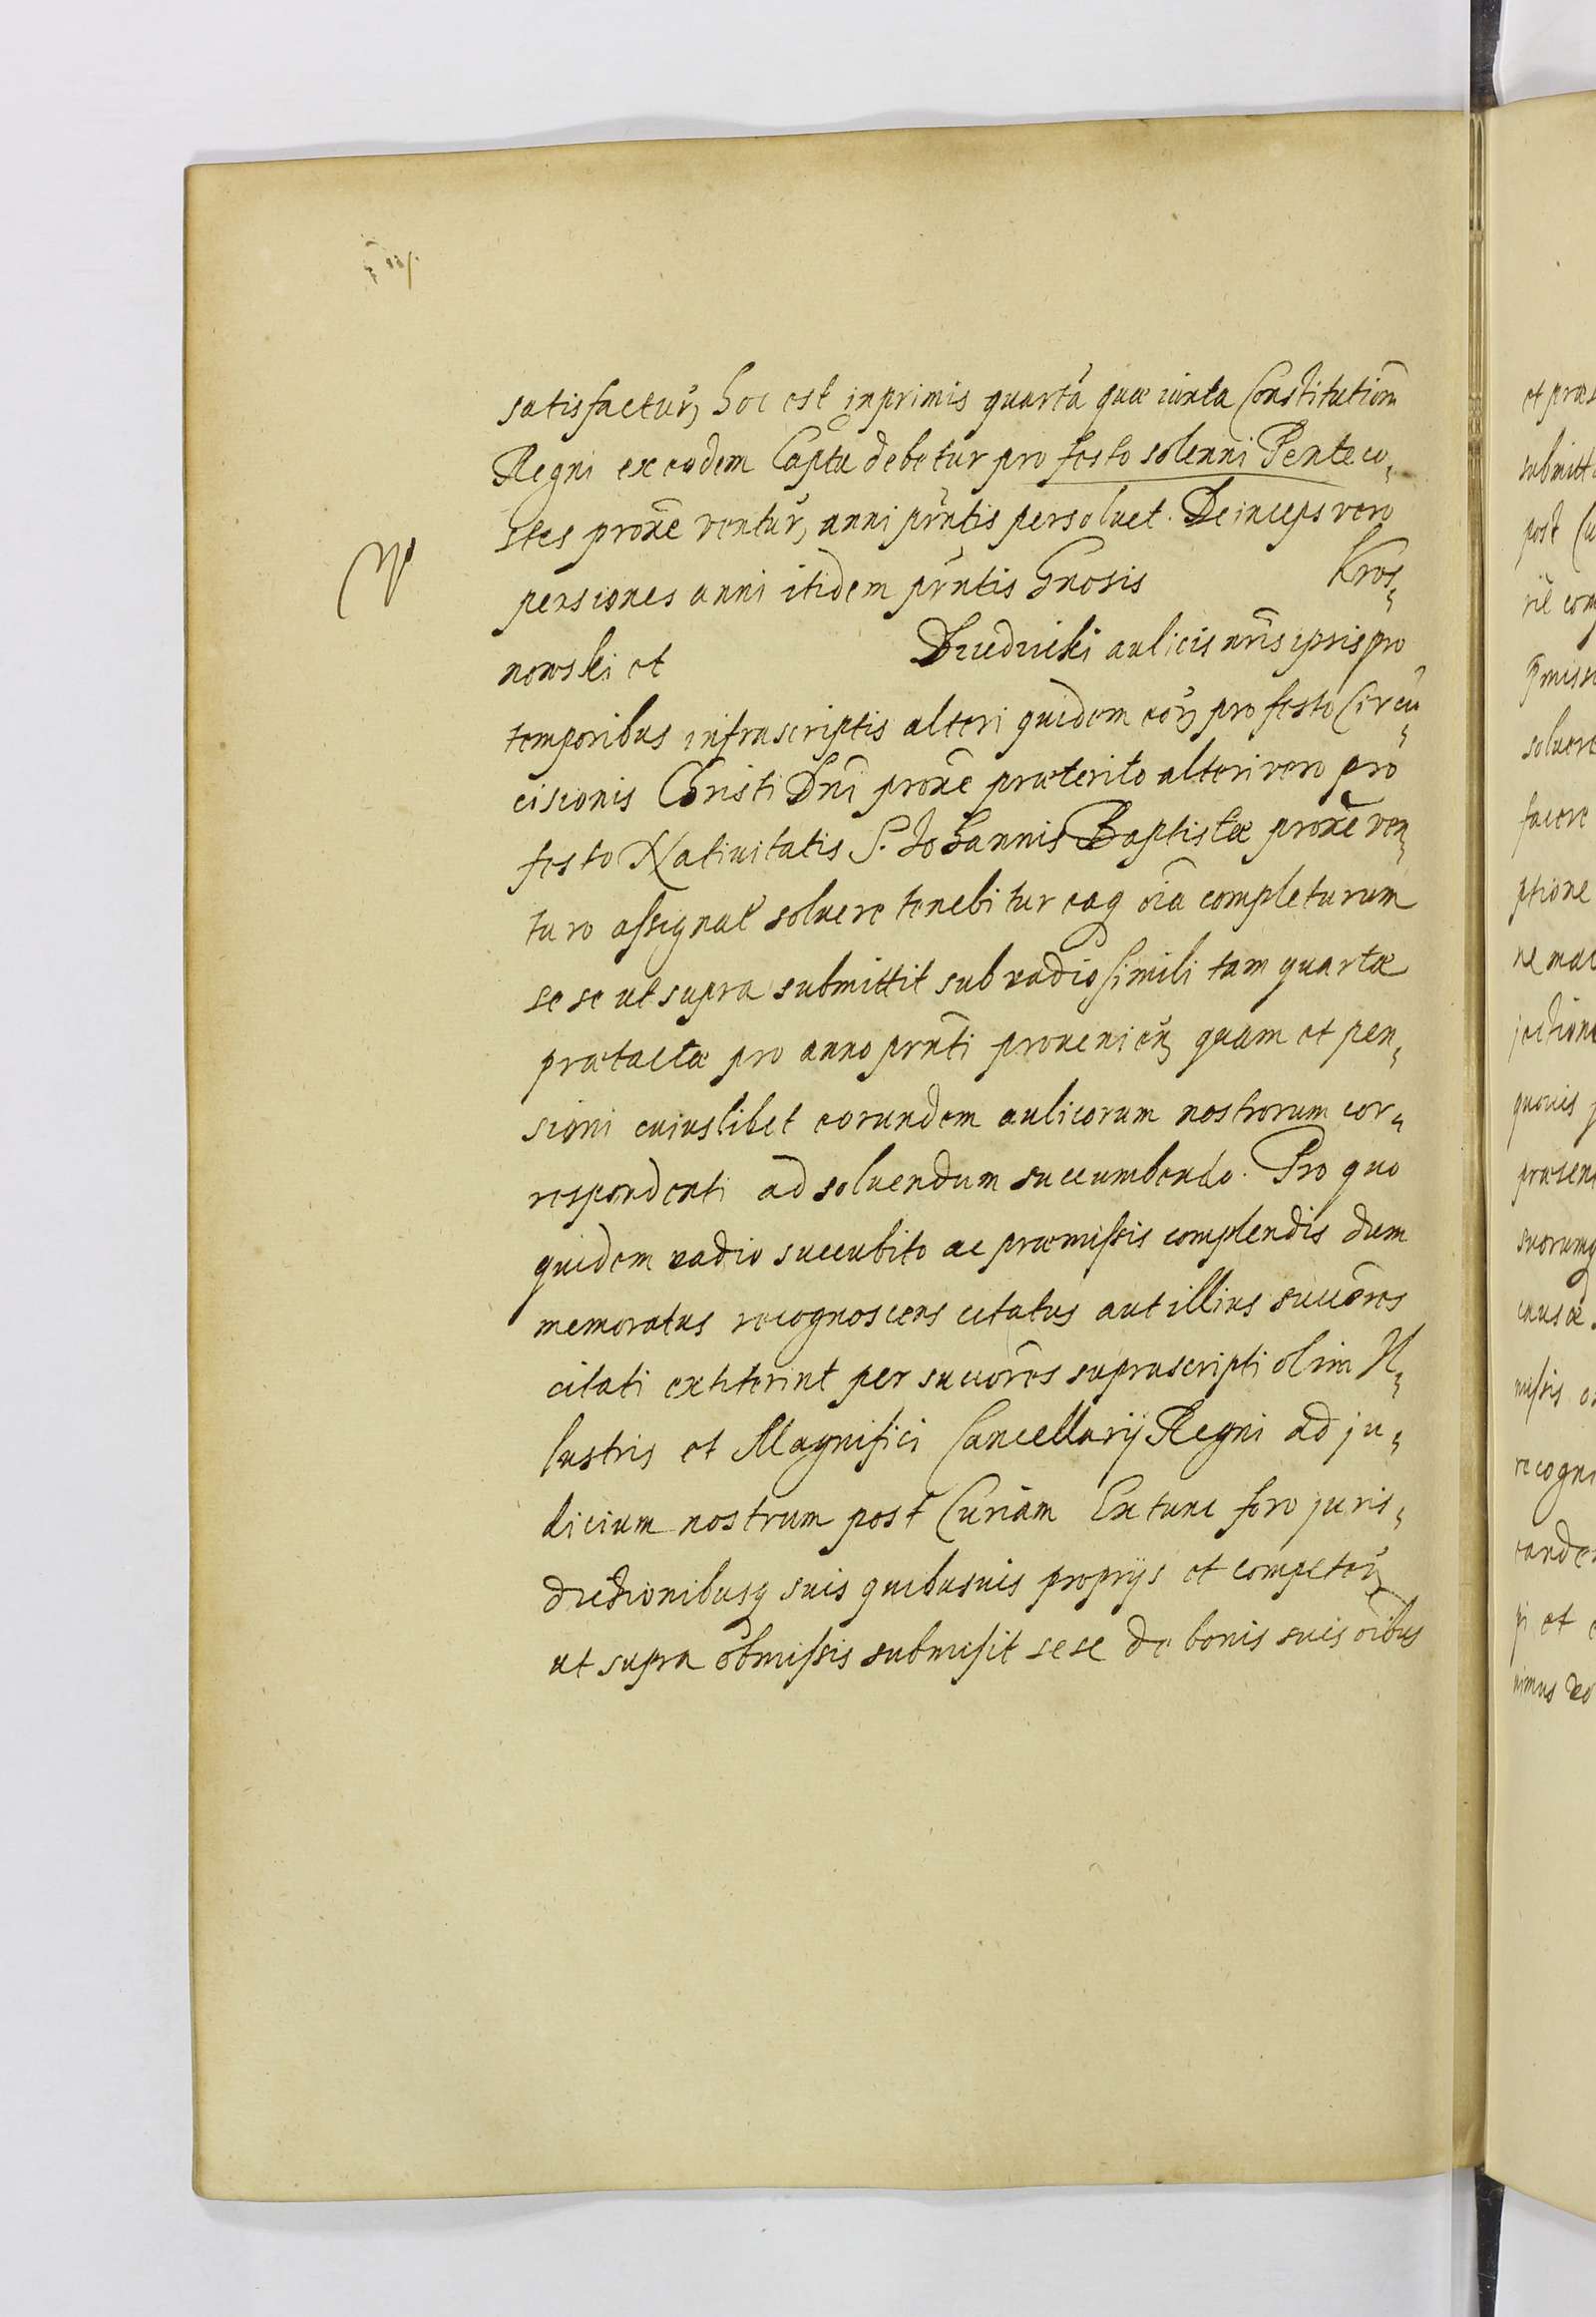 satisfactur, hoc est inprimis quartã quæ iuxta Constitutiõm
Regni ex eodem Captu debetur pro festo solenni Penteco„
stes proxẽ ventur, anni pr̃ntis persoluet. Deinceps vero
pensiones anni itidem pr̃ntis Gnosis Kros„
nowski et Drudnicki aulicis nr̃is ipsis pro
temporibus infrascriptis alteri quidem eor, pro festo Circũ„
cisionis Christi Dñi proxẽ præterito alteri vero pro
festo Natiuitatis S. Johannis Baptistæ proxẽ ven„
turo assignat̃ soluere tenebitur eaq oĩa completurum
sese ut supra submittit sub vadio simili tam quartæ
prætactæ pro anno prnti prouenien, quam et pen„
sioni cuiuslibet eorundem aulicorum nostrorum cor„
respondenti ad soluendum succumbendo. Pro quo
quidem vadio succubito ac præmissis complendis dum
memoratus recognoscens citatus aut illius succõres
citati extiterint per succõres suprascripti olim Il„
lustris et Magnifici Cancellarij Regni ad ju„
dicium nostrum post Curiam Extunc foro juris„
dictionibusq suis quibusuis proprijs et competen,
ut supra õbmissis submisit sese de bonis suis oĩbus
et præs
submitt
post Cu
soluere
facere
ptione
ne
jectione
quouis
præsen
suorumq
causæ
missis
recogn
et